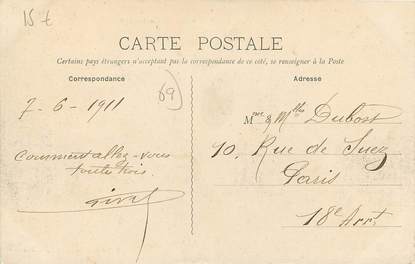 15 t
CARTE POSTALE
Certains pays étrangers n'acceptant pas la correspondance de ce côté, se renseigner à la Poste
Correspondance
Adresse
69
7-6-1911
Mme & Mlle Dubost
10, Rue de Suez
Paris
18e Arrt.
Comment allez-vous
toute trois.